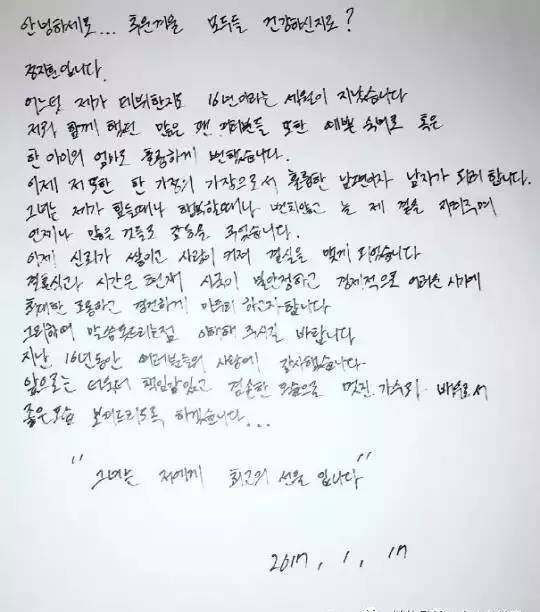 안녕하세요... 추운겨울 모두들 건강하신지요?
정지훈입니다.
어느덧 제가 데뷔한지도 16년이라는 세월이 지났습니다
저와 함께 했던 많은 팬 여러분들 또한 예쁜 숙녀로 혹은
한 아이의 엄마로 훌륭하게 변했습니다.
이제 저 또한 한 가정의 가장으로서 훌륭한 남편이자 남자가 되려 합니다.
그녀는 제가 힘들때나 행복할때나 변치않고 늘 제 곁을 지켜주며
언제나 많은 것들로 감동을 주었습니다.
이제 신뢰가 쌓이고 사랑이 커져 결실을 맺게 되었습니다
결혼식과 시간은 현재 시국이 불안정하고 경제적으로 어려운 시기에
최대한 조용하고 경건하게 마무리 하고자합니다
그리하여 말씀못드리는점 이해해 주시길 바랍니다
지난 16년동안 여러분들의 사랑에 감사했습니다
앞으로는 더욱더 책임감있고 겸손한 모습으로 멋진 가수와 배우로서
좋은모습 보여드리도록 하겠습니다...
" 그녀는 저에게 최고의 선물 입니다 "
2017. 1. 17